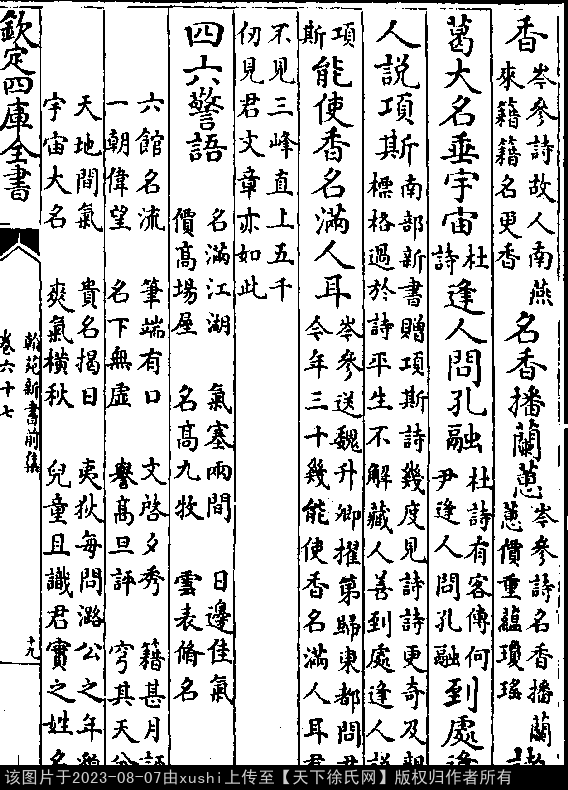 香
岑參詩故人南燕
來籍籍名更香
名香播蘭蕙
岑參詩名香播蘭
蕙價重藴瓊瑤
葛大名垂宇宙
杜
詩
逢人問孔融
杜詩有客傳何
尹逢人問孔融
到處逢
人説項斯
南部新書贈項斯詩幾度見詩詩更奇及觀
標格過於詩平生不解藏人善到處逢人説
項
斯
能使香名滿人耳
岑參送魏升卿擢第歸東都問君
今年三十幾能使香名滿人耳君
不見三峰直上五千
仞見君文章亦如此
四六警語
名滿江湖 氣塞兩間 日邊佳氣
價高場屋 名高九牧 雲表脩名
六館名流 筆端有口 文啓夕秀 籍甚月評
一朝偉望 名下無虛 譽高旦評 穹其天分
天地間氣 貴名揭日 夷狄每問潞公之年貌
宇宙大名 爽氣橫秋 兒童且識君實之姓名
欽定四庫全書
翰苑新書前集
卷六十七
十九
该图片于2023-08-07由xushi上传至【天下徐氏网】版权归作者所有